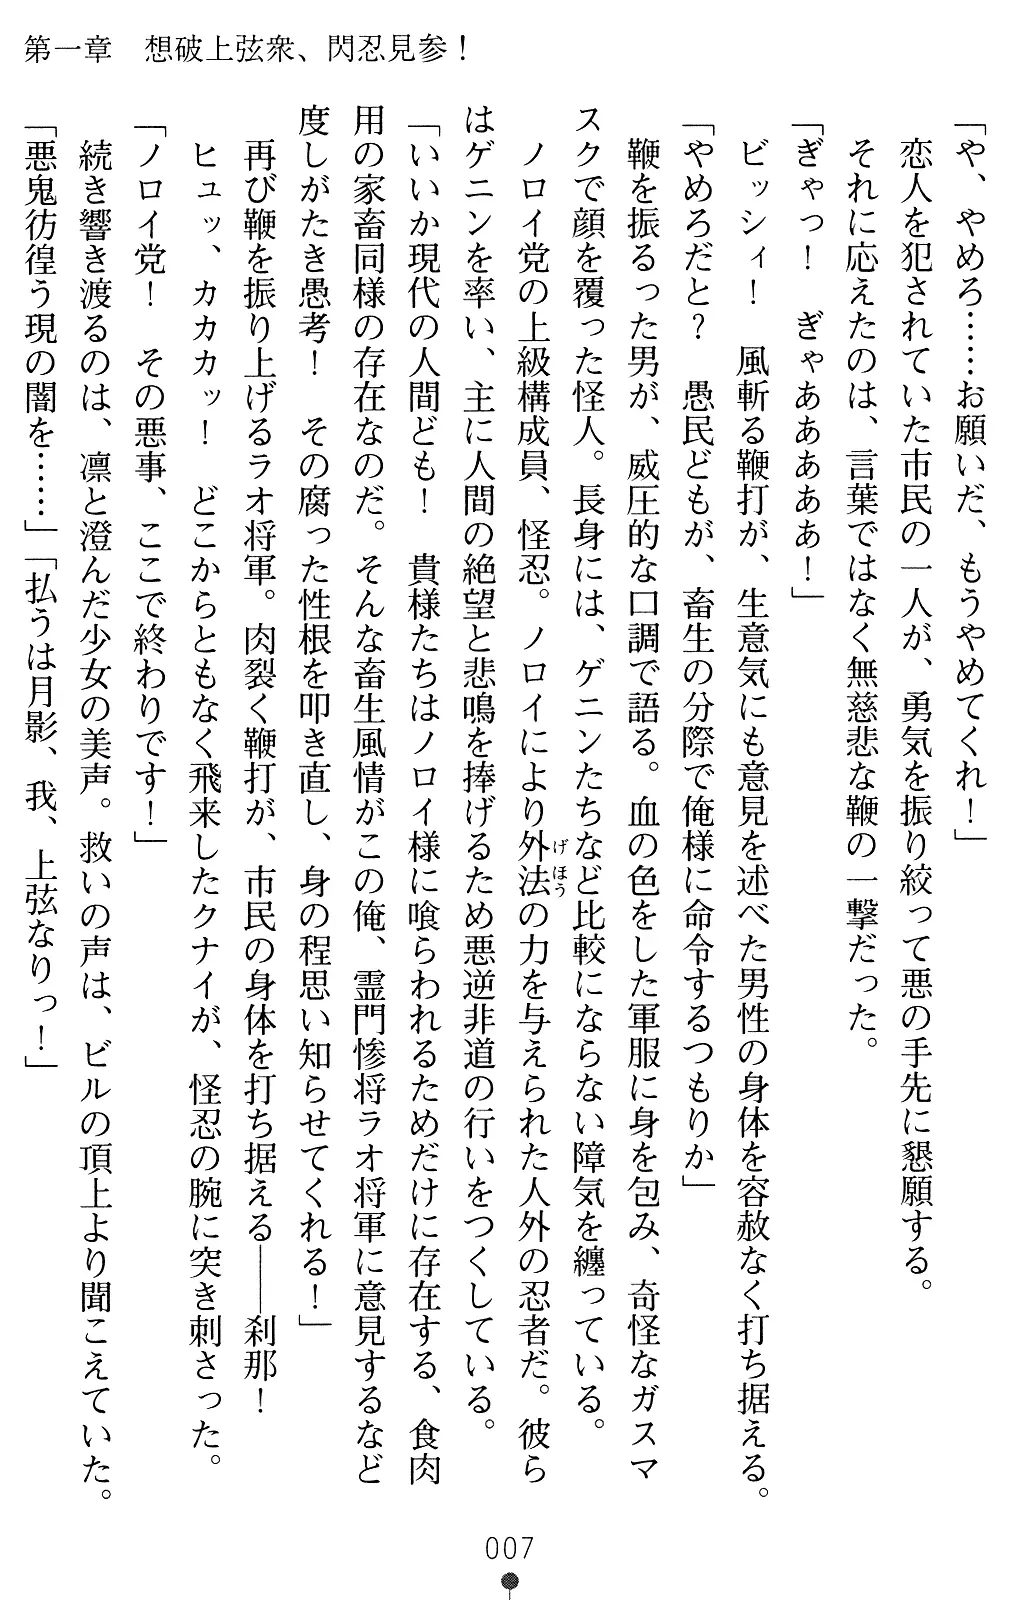 第一章　想破上弦衆、閃忍見参！
「や、やめろ……お願いだ、もうやめてくれ！」
恋人を犯されていた市民の一人が、勇気を振り絞って悪の手先に懇願する。
それに応えたのは、言葉ではなく無慈悲な鞭の一撃だった。
「ぎゃっ！　ぎゃああああ！」
ビッシィ！　風斬る鞭打が、生意気にも意見を述べた男性の身体を容赦なく打ち据える。
「やめろだと？　愚民どもが、畜生の分際で俺様に命令するつもりか」
鞭を振るった男が、威圧的な口調で語る。血の色をした軍服に身を包み、奇怪なガスマ
スクで顔を覆った怪人。長身には、ゲニンたちなど比較にならない障気を纏っている。
ノロイ党の上級構成員、怪忍。ノロイにより外法の力を与えられた人外の忍者だ。彼ら
げほう
はゲニンを率い、主に人間の絶望と悲鳴を捧げるため悪逆非道の行いをつくしている。
「いいか現代の人間ども！　貴様たちはノロイ様に喰らわれるためだけに存在する、食肉
用の家畜同様の存在なのだ。そんな畜生風情がこの俺、霊門惨将ラオ将軍に意見するなど
度しがたき愚考！　その腐った性根を叩き直し、身の程思い知らせてくれる！」
再び鞭を振り上げるラオ将軍。肉裂く鞭打が、市民の身体を打ち据える――刹那！
ヒュッ、カカカッ！　どこからともなく飛来したクナイが、怪忍の腕に突き刺さった。
「ノロイ党！　その悪事、ここで終わりです！」
続き響き渡るのは、凛と澄んだ少女の美声。救いの声は、ビルの頂上より聞こえていた。
「悪鬼彷徨う現の闇を……」「払うは月影、我、上弦なりっ！」
007